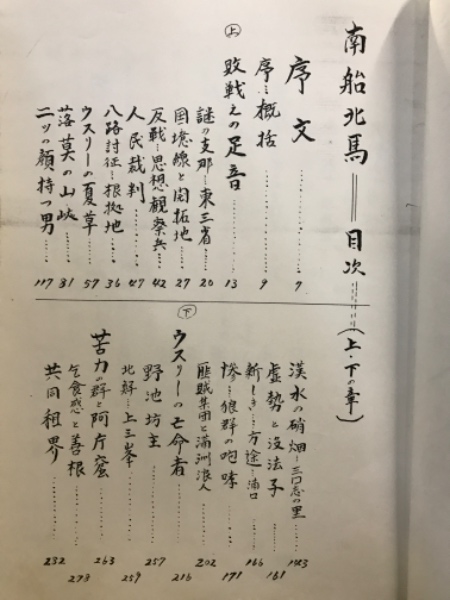 南船北馬＝＝目次……(上・下の章)
序文……7
序…概括……9
㊤
敗戦えの足音……13
謎の支那…東三省……20
国境線と開拓地……27
反戦…思想観察兵……42
人民裁判……47
八路討征…根拠地……36
ウスリーの夏草……57
落莫の山峡……81
二ツの顔持つ男……117
㊦
漢水の硝烟…三国志の里……143
虚勢と没法子……161
新しき…方途…浦口……166
惨…狼群の咆哮……171
匪賊集団と満洲浪人……202
ウスリーの亡命者……216
野池坊主……257
北鮮…上三峯……259
苦力の群と阿片窟……263
乞食感と善根……273
共同租界……232